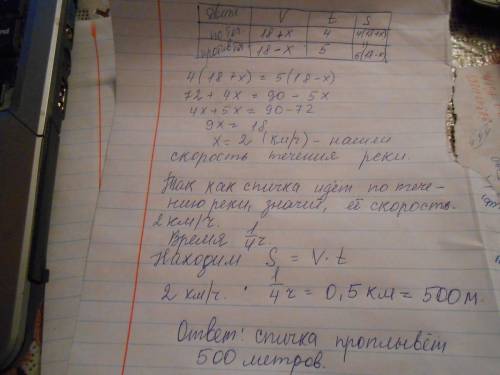 V t S
по теч. 18+x 4 4(18+x)
против теч. 18-x 5 5(18-x)
4(18+x) = 5(18-x)
72 + 4x = 90 - 5x
4x + 5x = 90 - 72
9x = 18
x = 2 (км/ч) - нашли
скорость течения реки.
Так как спичка идёт по тече-
нию реки, значит, её скорость
2 км/ч.
Время 1/4 ч
Находим S = V · t
2 км/ч. · 1/4 ч = 0,5 км = 500 м.
Ответ: спичка проплывёт
500 метров.